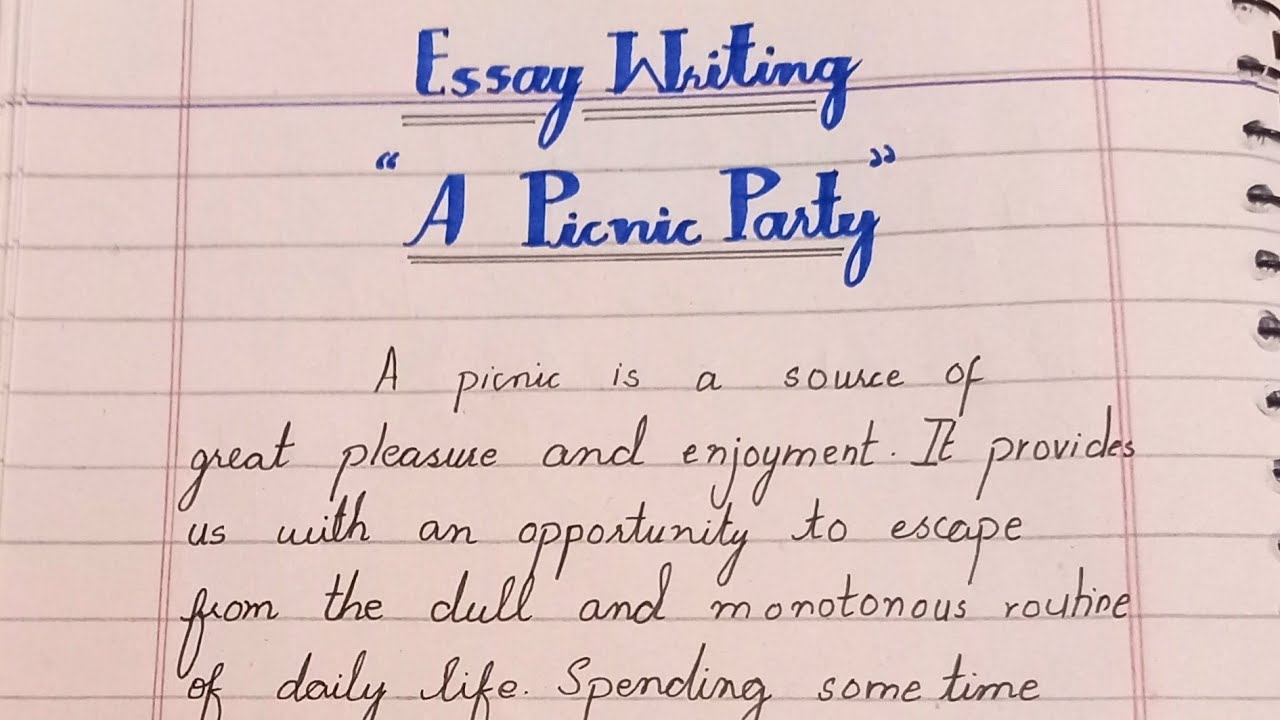 Essay Writing
“A Picnic Party”
A picnic is a source of
great pleasure and enjoyment. It provides
us with an opportunity to escape
from the dull and monotonous routine
of daily life. Spending some time